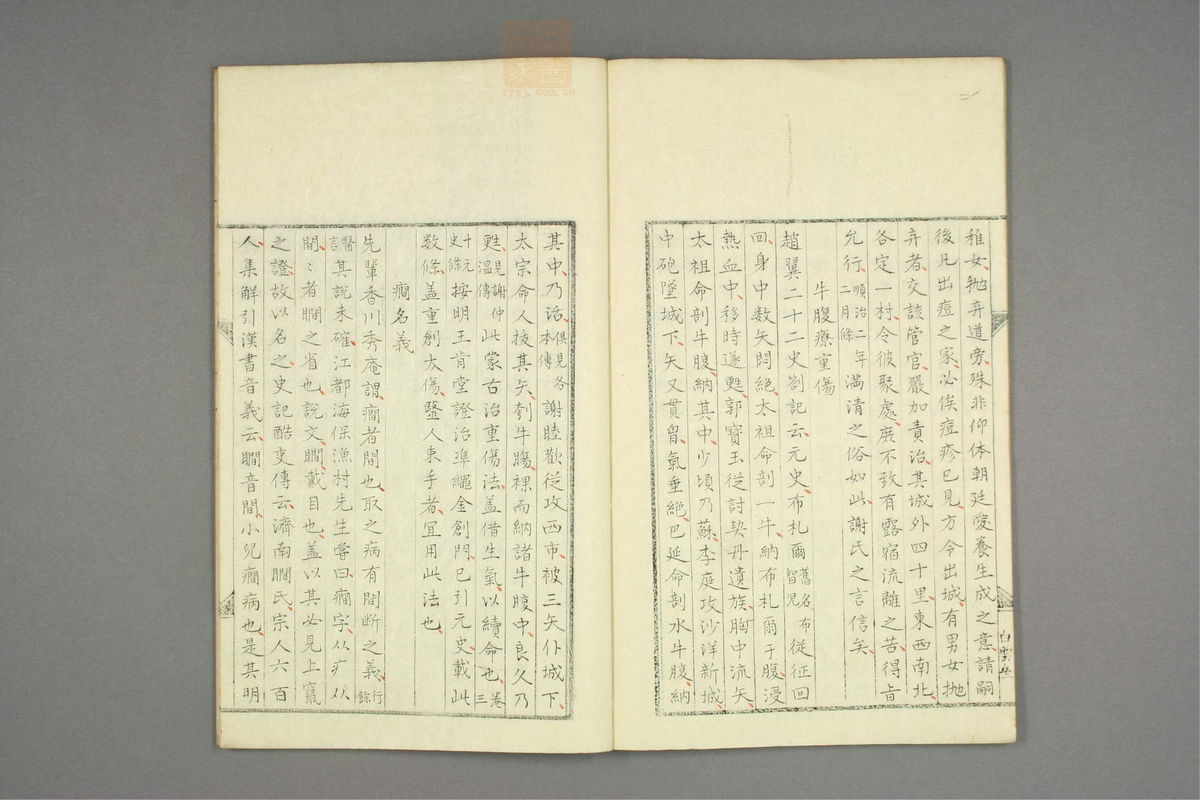 稚女抛弃道旁殊非仰体朝廷愛養生成之意請嗣
後凡出痘之家必俟痘疹已見方令出城有男女抛
弃者交該管官嚴加責治其城外四十里東西南北
各定一村令彼聚處庶不致有露宿流離之苦得旨
允行順治二年二月條満清之俗如此謝氏之言信矣
牛腹療重傷
趙翼二十二史劄記云元史布札爾舊名布智児従征回
回身中数矢悶絶太祖命剖一牛納布札爾于腹浸
熱血中移時遂甦郭寶玉従討契丹遺族胸中流矢
太祖命剖牛腹納其中少頃乃蘇李庭攻沙洋新城
中砲墜城下矢又貫胷氣垂絶巴延命剖水牛腹納
其中乃活俱見各本傳謝睦歡従攻西市被三矢仆城下
太宗命人拔其矢刳牛腸裸而納諸牛腹中良久乃
甦見謝仲温傳此蒙古治重傷法盖借生氣以續命也卷三
十元史條按明王肯堂證治凖繩金創門已引元史載此
数條盖重創大傷毉人束手者冝用此法也
癇名義
先輩香川秀庵謂癇者間也取之病有間断之義行餘
醫言其説未確江都海保漁村先生嘗曰癇字从疒从
間〻者瞷之省也説文瞷戴目也盖以其必見上竄
之證故以名之史記酷吏傳云濟南瞷氏宗人六百
人集解引漢書音義云瞷音間小兒癇病也是其明